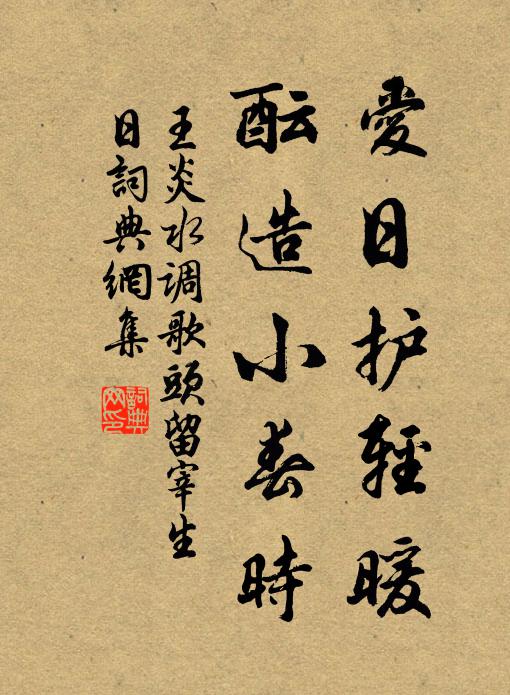 愛日护輕暖
酝造小春時
王炎水调歌頭留宰生
日詞典網集
詞典
网印